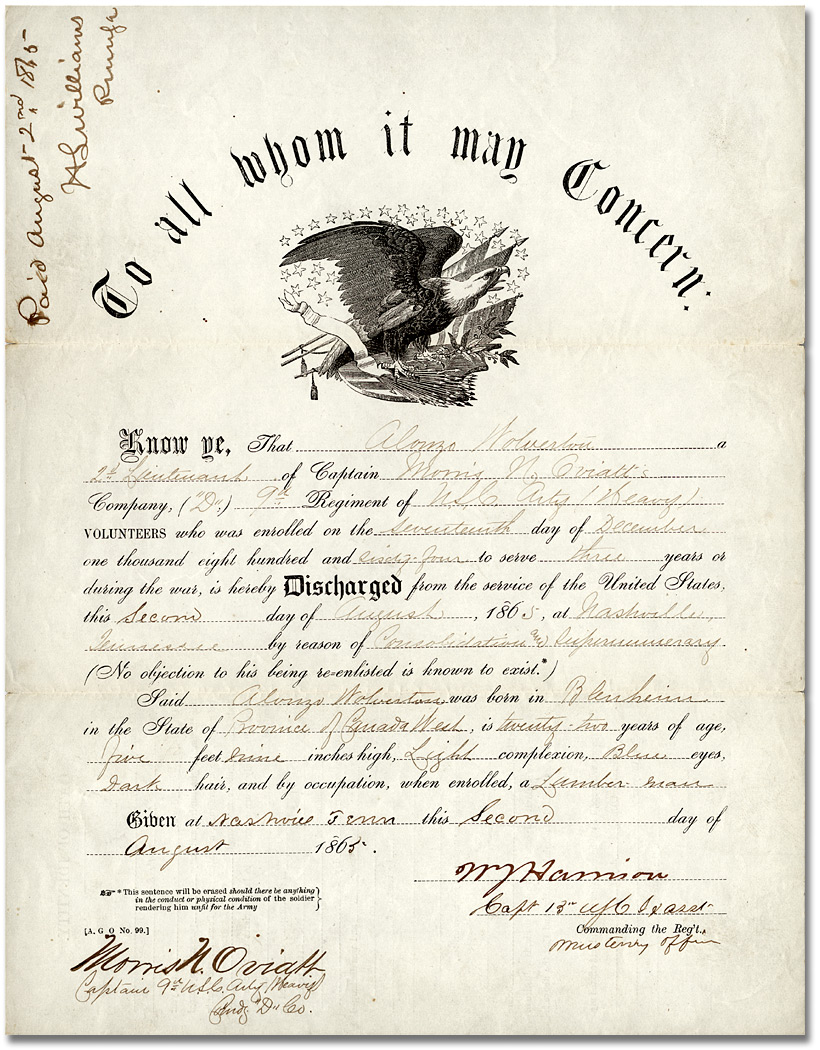 Paid August 2nd 1865
Williams
To all whom it may Concern:
Know ye, That Alonzo Wolverton a
2d Lieutenant of Captain Morris N. Oviatt's
Company, ("D") 9th Regiment of U.S.C. Arty (Heavy)
VOLUNTEERS who was enrolled on the seventeenth day of December
one thousand eight hundred and sixty-four to serve three years or
during the war, is hereby Discharged from the service of the United States,
this Second day of August, 1865, at Nashville,
Tennessee by reason of Consolidation supernumerary
(No objection to his being re-enlisted is known to exist.*)
Said Alonzo Wolverton was born in Blenheim
in the State of Province of Canada West, is twenty-two years of age,
five feet nine inches high, Light complexion, Blue eyes,
Dark hair, and by occupation, when enrolled, a Lumber man
Given at Nashville Tenn this Second day of
August 1865.
W J Harrison
Capt 13th
* This sentence will be erased should there be anything
in the conduct or physical condition of the soldier
rendering him unfit for the Army
[A. G. O No. 99.]
Commanding the Reg't.
Mustering Officer
Morris N. Oviatt
Captain 9th U.S.C. Arty (Heavy)
Comdg "D" Co.